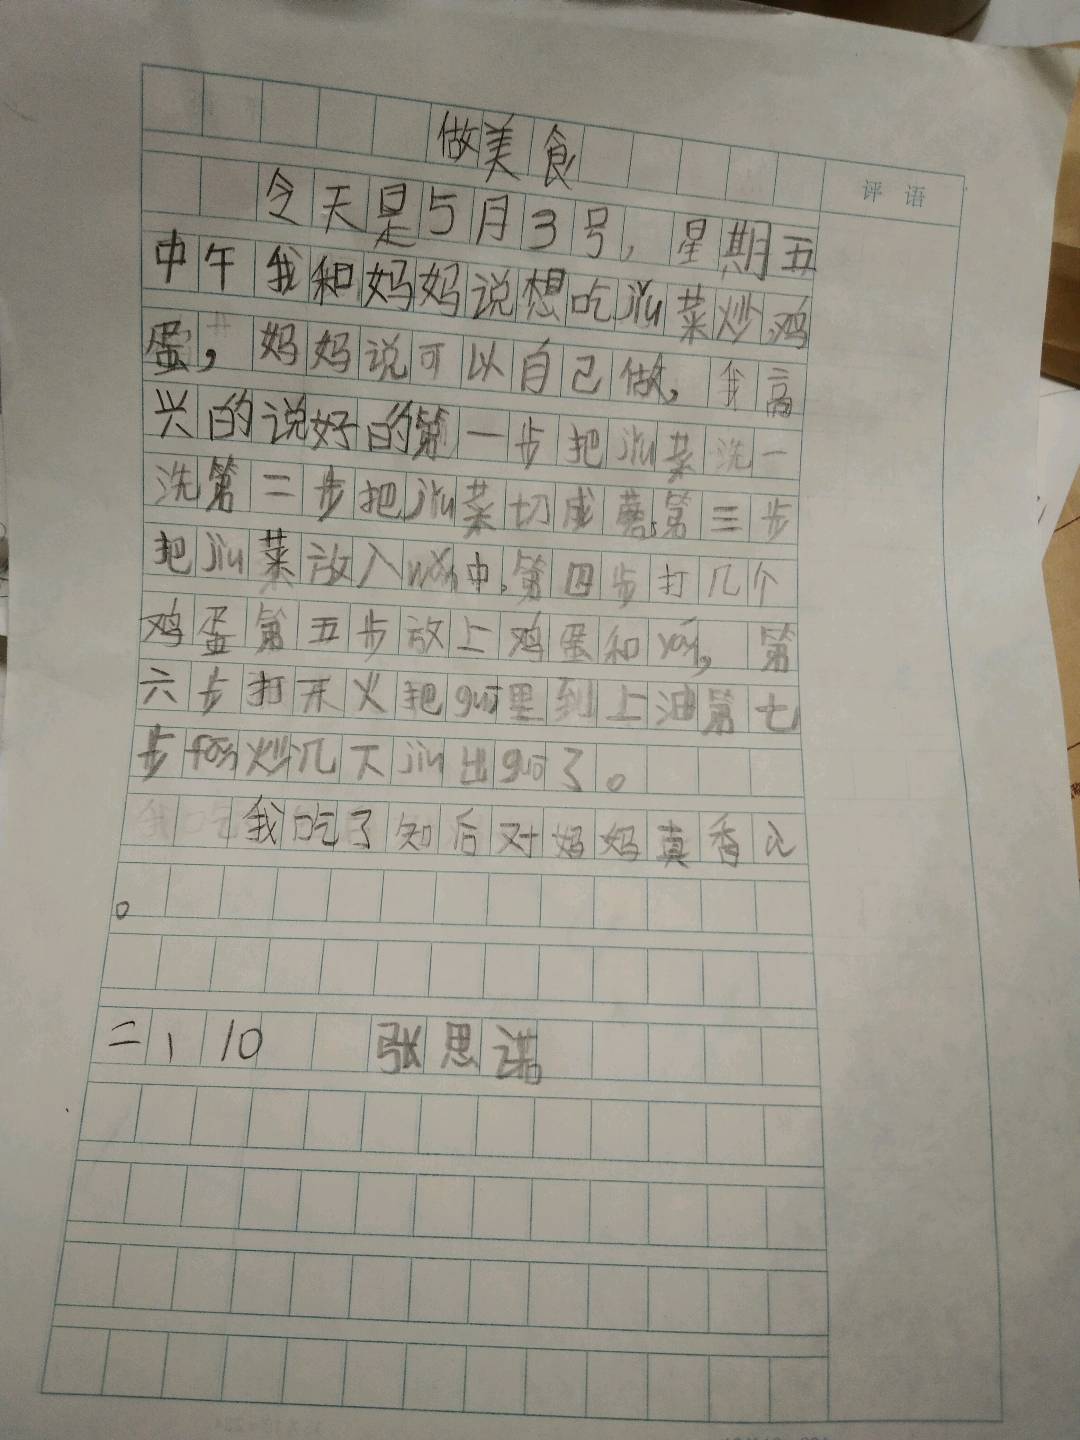 做美食
评语
今天是5月3号，星期五
中午我和妈妈说想吃jiu菜炒鸡
蛋，妈妈说可以自己做，我高
兴的说好的第一步把jiu菜洗一
洗第二步把jiu菜切成 第三步
把jiu菜放入wǎn中，第四步打几个
鸡蛋第五步放上鸡蛋和 ，第
六步打开火把guō里到上油第七
步fān炒几下jiu出guō了。
我吃了知后对妈妈真香
。
二、10 张思诺